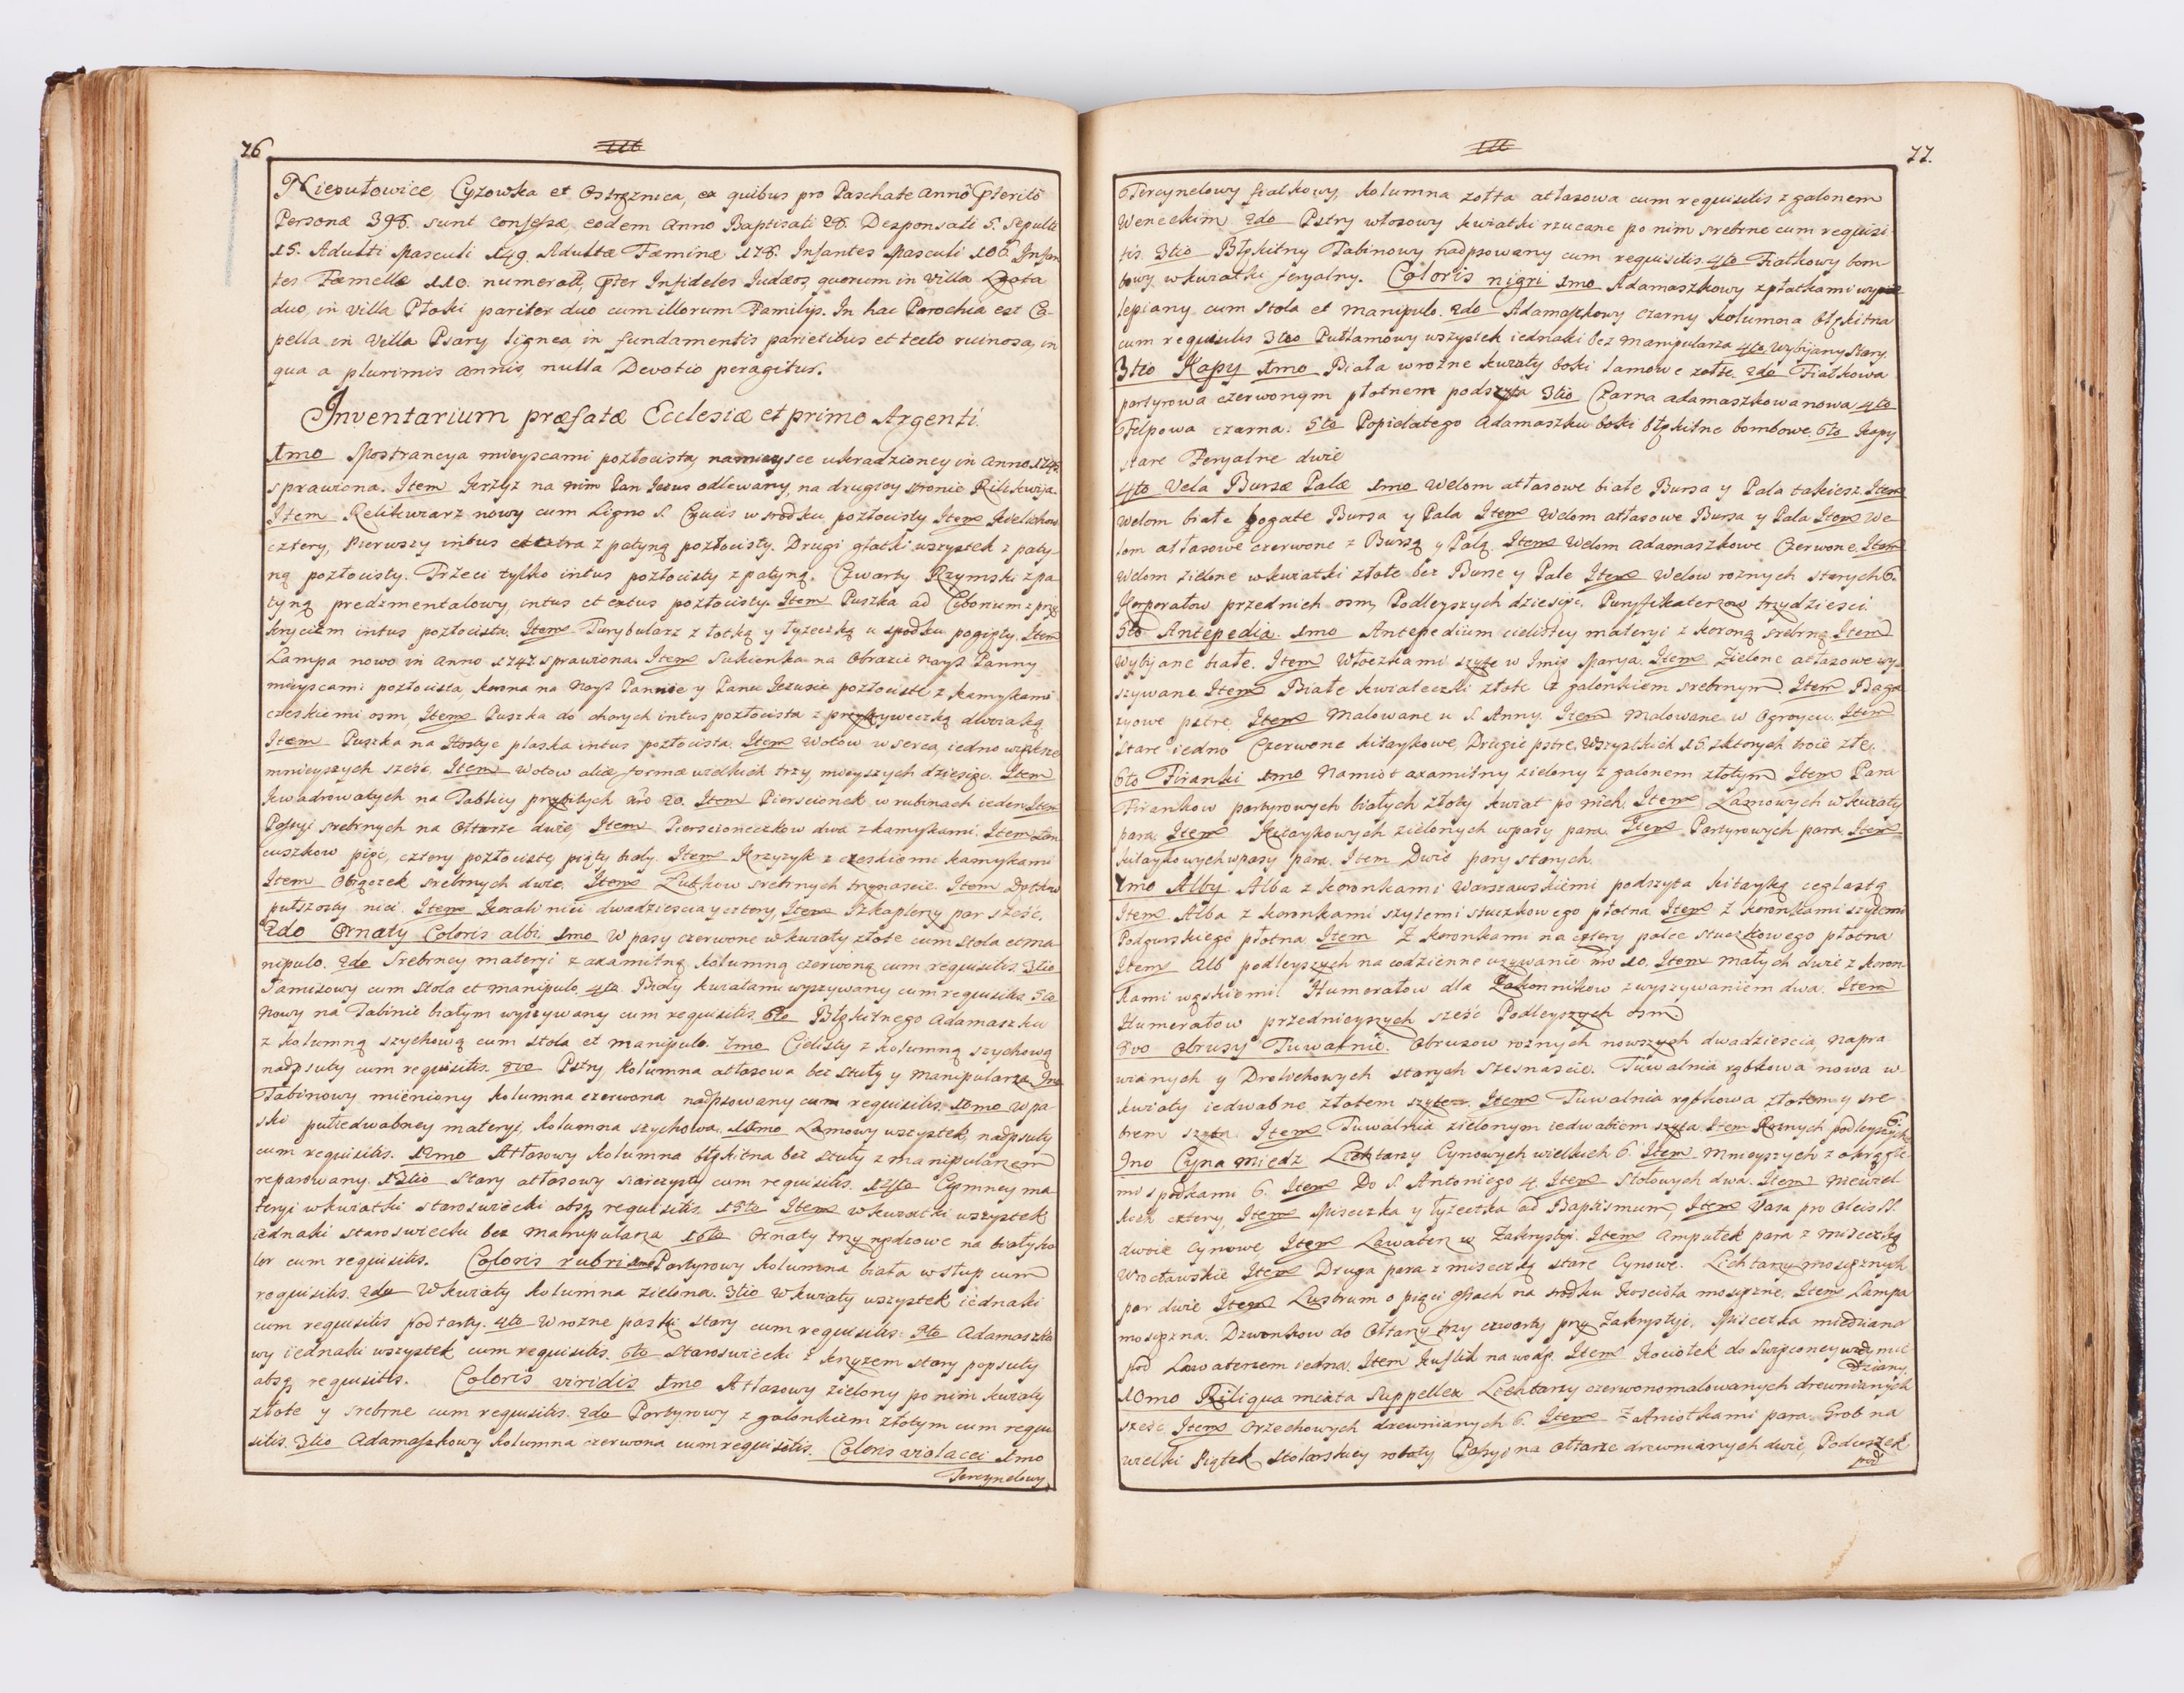 76
Niesułowice, Cyzowka et Ostręznica, ex quibus pro Paschate Anno pteritô
Personæ 398. sunt confessæ, eodem Anno Baptisati 28. Desponsati 5. Sepulti
15. Adulti Masculi 149. Adultæ Fæminæ 178. Infantes Masculi 106. Infan
tes Fæmellæ 110. pter Infideles Judæos, quorum in Villa
duo, in Villa Płoki pariter duo cum illorum Familijs. In hac Parochia est Ca-
pella in Villa Psary lignea, in fundamentis parietibus et tecto ruinosa, in
qua a plurimis annis, nulla Devotio peragitur.
Inventarium præfatæ Ecclesiæ et primo Argenti.
1mo Mostrancya mieyscami pozłocista, na mieysce ukradzioney in Anno
sprawiona. Item Krzyz na nim Pan Jezus odlewany, na drugiey stronie Relikwija.
Item Relikwiarz nowy cum Ligno S. Crucis w srodku pozłocisty Item Kielichow
cztery, Pierwszy intus et extra z patyną pozłocisty. Drugi gładki wszystek z paty-
ną pozłocisty. Trzeci tylko intus pozłocisty z patyną. Czwarty Rzymski z pa
tyną predzmentalowy intus et extus pozłocisty. Item Puszka ad Ciborium z przy
kryciem intus pozłocista. Item Turybularz z łotką y łyzeczką u spodku pogięty. Item
Lampa nowo in Anno 1747 sprawiona. Item Sukienka na Obrazie Nayś Panny
mieyscami pozłocista, korona na Nayś Pannie y Panu Jezusie pozłociste z kamykami
czeskiemi osm, Item Puszka do chorych intus pozłocista z przykryweczką dwoiaką
Item Puszka na Hostye płaska intus pozłocista. Item Wotow w serca, iedno większe
mnieyszych sześć, Item Wotow aliæ formæ wielkich trzy, mieyszych dziesięc. Item
Kwadrowatych na Tablicy przybitych nro 20. Item Pierscionek w rubinach ieden Item
Passyi srebrnych na Ołtarze dwie, Item Pierscioneczkow dwa z kamykami. Item Łan
cuszkow pięć, cztery pozłociste, piąty biały. Item Krzyzyk z czeskiemi kamykami
Item Obrączek srebrnych dwie, Item Zubkow srebrnych trzynascie. Item
pułszosty nici. Item Korali nici dwadziescia y cztery, Item Szkaplerzy par sześć.
2do Ornaty Coloris albi. 1mo W pasy czerwone w kwiaty złote cum stola et ma-
nipulo. 2do Srebrney materyi z axamitną kolumną czerwoną cum requisitis. 3tio
Tamizowy cum stola et manipulo. 4to Biały kwiatami wyszywany cum requisitis 5to
Nowy na Tabinie białym wyszywany cum requisitis. 6to Błękitnego Adamaszku
z kolumną szychową cum stola et manipulo. 7mo Cielisty z kolumną szychową
nadpsuty cum requisitis. 8vo Pstry kolumna atłasowa bez stuły y manipularza. 9no
Tabinowy mieniony kolumna czerwona nadpsowany cum requisitis. 10mo W pa
ski pułiedwabney materyi, kolumna szychowa. 11mo Lamowy wszystek, nadpsuty
cum requisitis. 12mo Atłasowy kolumna błękitna bez stuły z manipularzem
reparowany. 13tio Stary atłasowy siarczysty cum requisitis. 14to Ciemney ma
teryi w kwiatki staroswiecki absq requisitis. 15to Item w kwiatki wszystek
iednaki staroswiecki bez manipularza 16to Ornaty trzy rądcowe na białyko
lor cum requisitis. Coloris rubri 1mo Partyrowy kolumna biała w słup cum
requisitis. 2do W kwiaty kolumna zielona. 3tio W kwiaty wszystek iednaki
cum requisitis podtarty. 4to W rozne paski stary cum requisitis. 5to Adamaszko
wy iednaki wszystek cum requisitis. 6to Staroswiecki z krzyzem stary popsuty
absq requisitis. Coloris viridis 1mo Atłasowy zielony po nim kwiaty
złote y srebrne cum requisitis. 2do Partyrowy z galonkiem złotym cum requi
sitis. 3tio Adamaszkowy kolumna czerwona cum requisitis. Coloris violacei 1mo
Tercynelowy
77.
Tercynelowy fiałkowy, kolumna zołta atłasowa cum requisitis z galonem
Weneckim 2do Pstry włosowy kwiatki rzucane po nim srebrne cum requisi
tis. 3tio Błękitny Tabinowy nadpsowany cum requisitis. 4to Fiałkowy bom
bowy w kwiatki feryalny. Coloris nigri 1mo Adamaszkowy z płatkami
lepiany cum stola et manipulo. 2do Adamaszkowy czarny kolumna błękitna
cum requisitis 3tio Putłamowy wszystek iednaki bez manipularza 4to Wybijany stary.
3tio Kapy 1mo Biała w rozne kwiaty boki lamowe zołte. 2do Fiałkowa
portyrowa czerwonym płotnem podszyta 3tio Czarna adamaszkowa nowa 4to
Felpowa czarna. 5to Popielatego Adamaszku boki błękitne bombowe 6to Kapy
stare Feryalne dwie
4to Vela Bursæ Palæ 1mo Welom atłasowe białe Bursa y Pala takiesz Item
Welom białe bogate Bursa y Pala Item Welom atłasowe Bursa y Pala Item We
lom atłasowe czerwone z Bursą y Palą. Item Welom adamaszkowe Czerwone. Item
Welom zielone w kwiatki złote bez Burse y Pale Item Welow roznych starych 6.
Korporałow przednich osm, Podleyszych dziesięc. Puryfikaterzow trzydziesci.
5to Antepedia. 1mo Antepedium cielistey materyi z koroną srebrną Item
Wybijane białe. Item Włoczkami szyte w Imię Marya. Item Zielone atłasowe wy
szywane Item Białe kwiateczki złote z galonkiem srebrnym Item Baga
zyowe pstre Item Malowane u S. Anny. Item Malowane w Ogroycu. Item
Stare iedno Czerwone kitaykowe, Drugie pstre. Wszystkich 15. z ktorych troie złe.
6to Firanki 1mo Namiot axamitny zielony z galonem złotym Item Para
Firankow partyrowych białych złoty kwiat po nich. Item Lamowych w kwiaty
para. Item Kitaykowych zielonych w pasy para. Item Partyrowych para. Item
kitaykowych w pasy para. Item Dwie pary starych.
7mo Alby Alba z koronkami Warszawskiemi podszyta kitayką ceglastą
Item Alba z koronkami szytemi stuczkowego płotna Item z koronkami szytemi
Podgurskiego płotna Item Z koronkami na cztery palce stuczkowego płotna
Item Alb podleyszych na codzienne uzywanie nro 10. Item małych dwie z koron
kami wąskiemi. Humerałow dla Zakonnikow z wyszywaniem dwa. Item
Humerałow przednieyszych sześć Podleyszych osm
8vo Obrusy Tuwalnie. Obrusow roznych nowszych dwadziescia, napra
wianych y Drelichowych starych szesnascie. Tuwalnia rąbkowa nowa w
kwiaty iedwabne złotem szyte. Item Tuwalnia rąbkowa złotem y sre
brem szyta. Item Tuwalnia zielonym iedwabiem szyta Item Roznych podleyszych 6.
9no Cyna Miedz Lichtarzy Cynowych wielkich 6. Item Mnieyszych z okrągłe
mi spodkami 6. Item Do S. Antoniego 4. Item Stołowych dwa. Item Niewiel
kich cztery, Item Miseczka y łyzeczka ad Baptismum, Item Vasa pro Oleis SS.
dwoie Cynowe, Item Lawaterz w Zakrystyi. Item Ampułek para z miseczką
Wrocławskie Item Druga para z miseczką stare Cynowe. Lichtarzy mosięznych
par dwie Item Lustrum o pięci na srodku Koscioła mosięzne. Item Lampa
mosięzna. Dzwonkow do Ołtarzy trzy czwarty przy Zakrystyi. Miseczka miedziana
pod Lawaterzem iedna. Item Kuflik na wodę. Item Kociołek do Swięconey wody mie
dziany.
10mo Reliqua mixta Suppellex Lichtarzy czerwonomalowanych drewnianych
sześć Item Orzechowych drewnianych 6. Item Z Aniołkami para. Grob na
wielki Piątek stolarskiey roboty Passyi na Ołtarze drewnianych dwie, Poduszek
pod